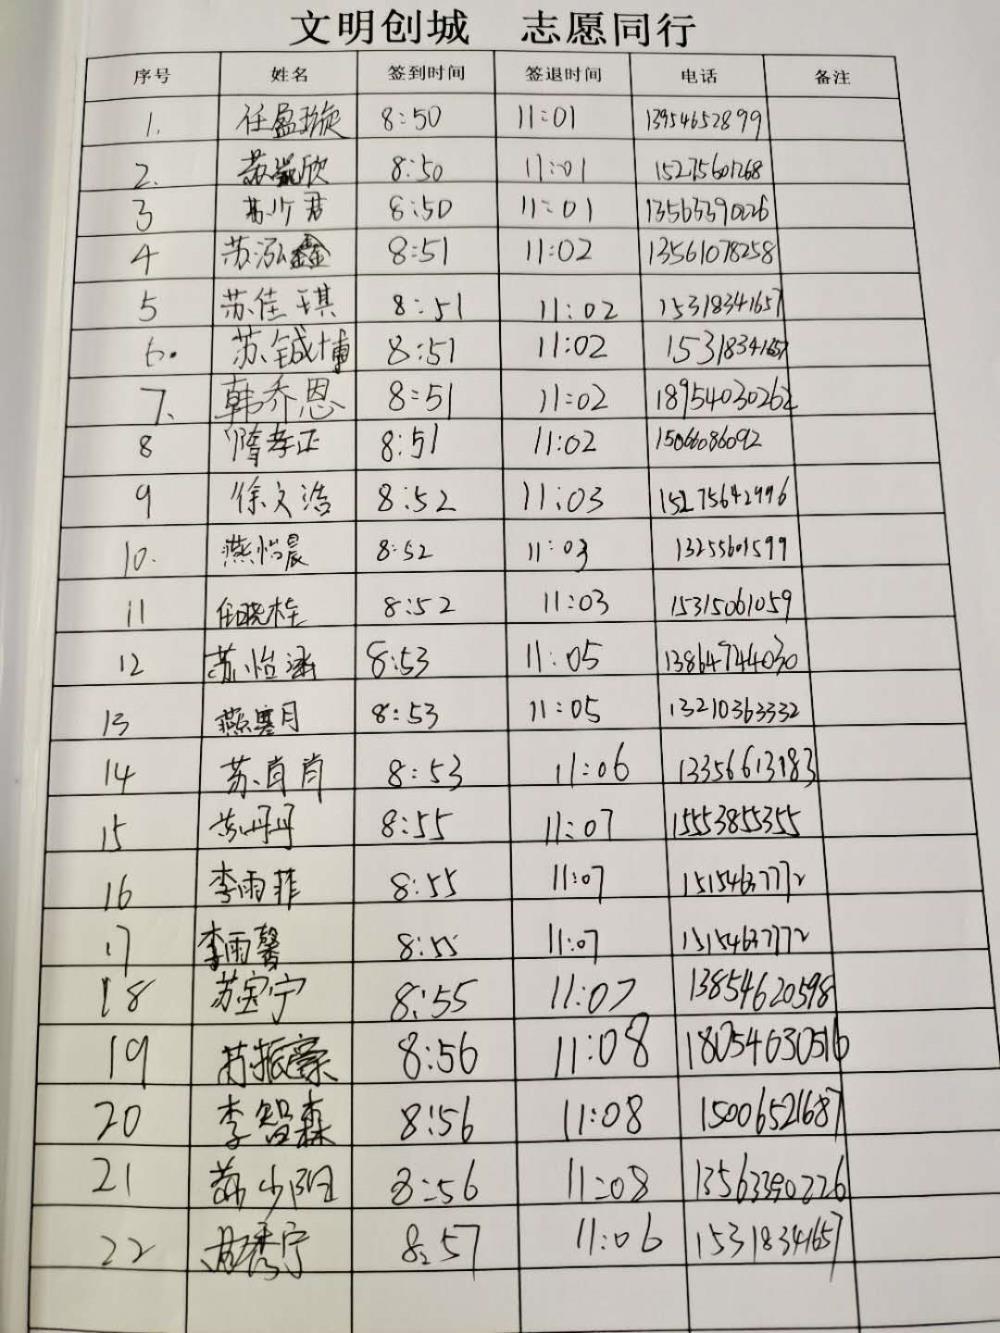 文明创城 志愿同行
序号 姓名 签到时间 签退时间 电话 备注
1. 任盈璇 8:50 11:01 13954652899
2. 苏欣 8:50 11:01 15275601268
3 苏少君 8:50 11:01 13563390226
4 苏泓鑫 8:51 11:02 13561078258
5 苏佳琪 8:51 11:02 15318341657
6. 苏铖博 8:51 11:02 15318341657
7. 韩乔恩 8:51 11:02 18954030262
8 隋孝正 8:51 11:02 15066086092
9 徐文浩 8:52 11:03 15275642996
10. 燕怡晨 8:52 11:03 13255601599
11 任晓栓 8:52 11:03 15315061059
12 苏怡涵 8:53 11:05 13864744030
13 燕寒月 8:53 11:05 13210363332
14 苏肖肖 8:53 11:06 13356613183
15 苏丹丹 8:55 11:07 15553855355
16 李雨菲 8:55 11:07 15154637772
17 李雨馨 8:55 11:07 15154637772
18 苏宝宁 8:55 11:07 13854620598
19 苏振豪 8:56 11:08 18054630516
20 李智森 8:56 11:08 15006521687
21 苏少阳 8:56 11:08 13563390226
22 秀宁 8:57 11:06 15318341657